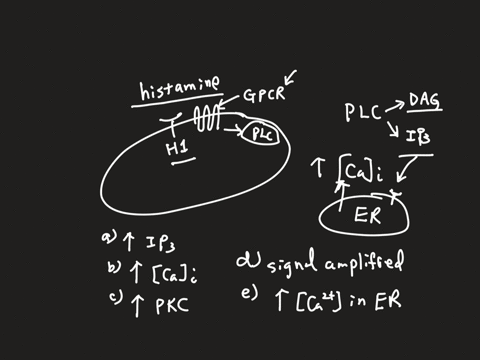 histamine
GPCR
PLC
H1
PLC
DAG
IP₃
↑ [Ca]i
ER
a) ↑ IP₃
b) ↑ [Ca]i
c) ↑ PKC
d) signal amplified
e) ↑ [Ca²⁺] in ER